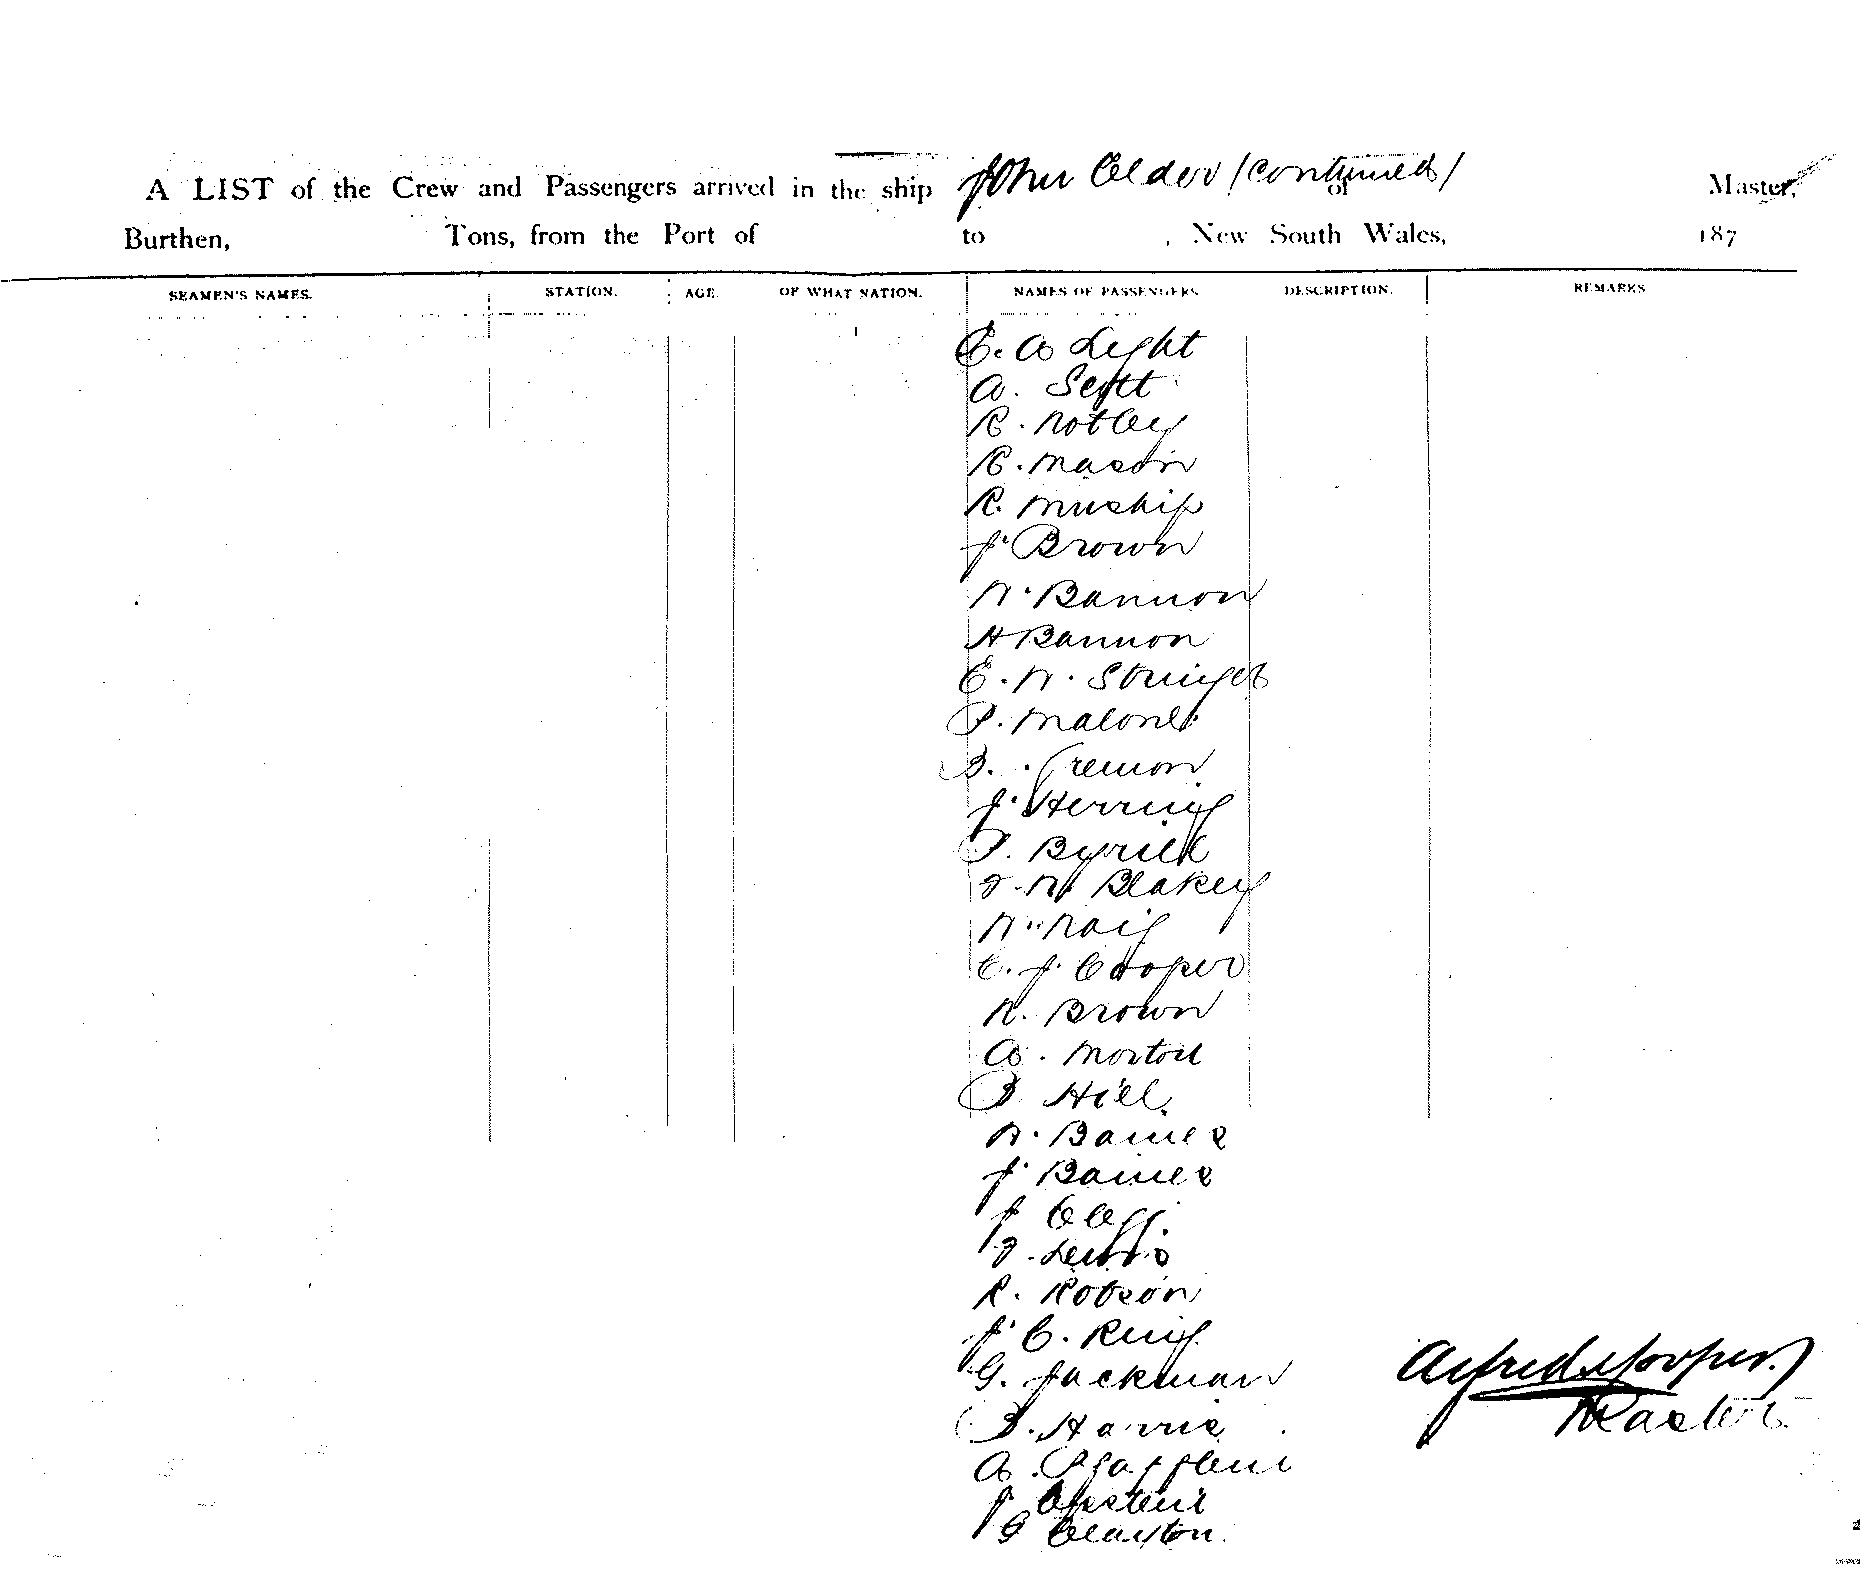 A LIST of the Crew and Passengers arrived in the ship John Elder (Continued) of Master,
Burthen, Tons, from the Port of to , New South Wales, 187
SEAMEN'S NAMES. STATION. AGE. OF WHAT NATION. NAMES OF PASSENGERS. DESCRIPTION. REMARKS
E. A Light
A. Scott
R. Notley
C. Mason
R. Muship
J. Brown
W. Bannon
H Bannon
E. W. Stringer
P. Malone
B.
J. Herring
P.
F. W. Blakey
W.
C. J. Cooper
R. Brown
A. Morton
B Hill
W. Baines
J. Baines
J
F. Lewis
R. Robson
J. C. King
G. Jackman
B. Harris
A.
J. Epstein
G Clayton
Alfred Cooper
Master